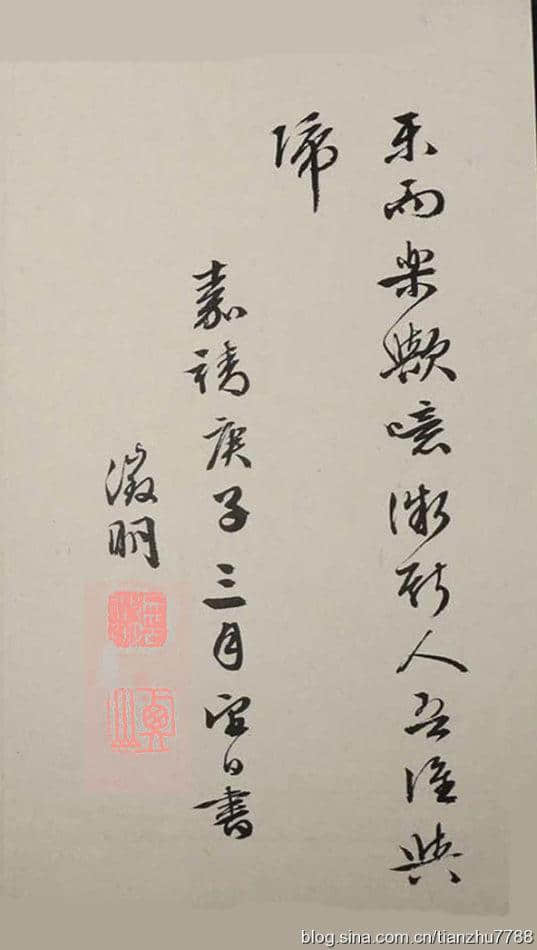 乐而樂歟噫微斯人吾誰與
歸
嘉靖庚子三月日書
徵明
blog.sina.com.cn/tianzhu7788